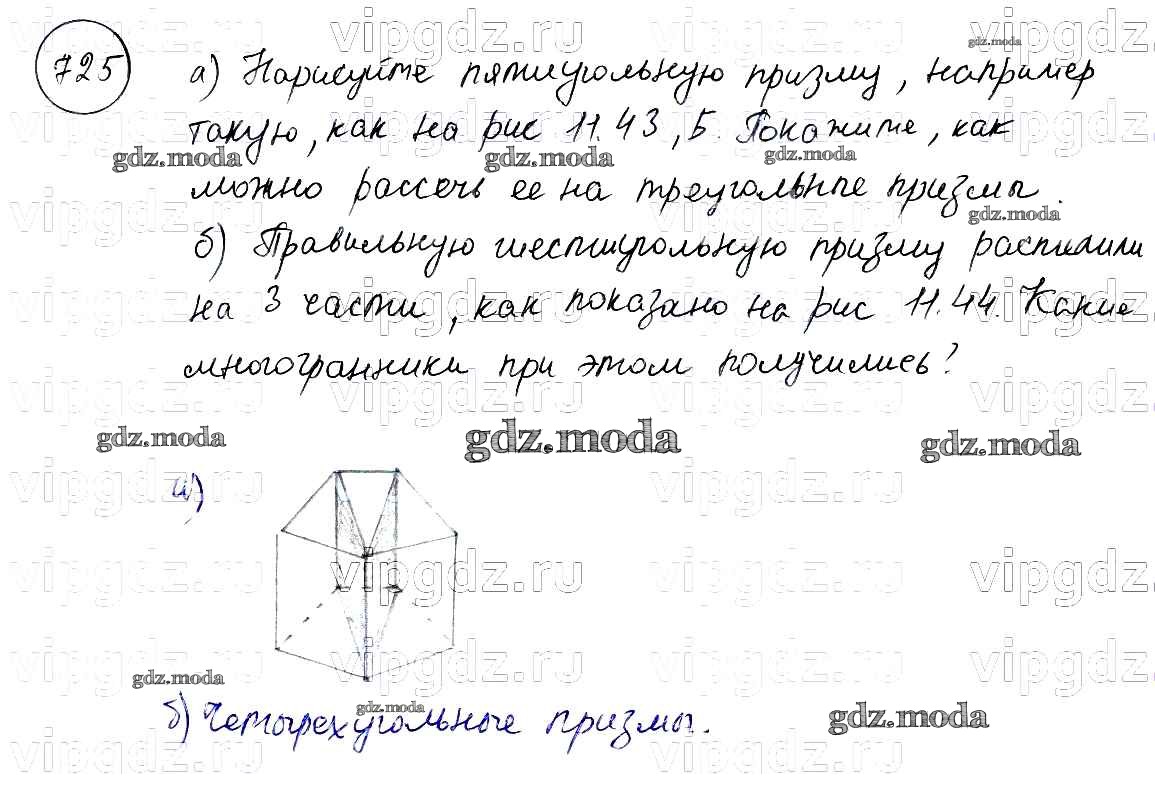 725
а) Нарисуйте пятиугольную призму, например
такую, как на рис 11.43, Б. Покажите, как
можно рассечь ее на треугольные призмы.
б) Правильную шестиугольную призму распилили
на 3 части, как показано на рис 11.44. Какие
многогранники при этом получились?
а)
б) Четырехугольные призмы.
vipgdz.ru
gdz.moda